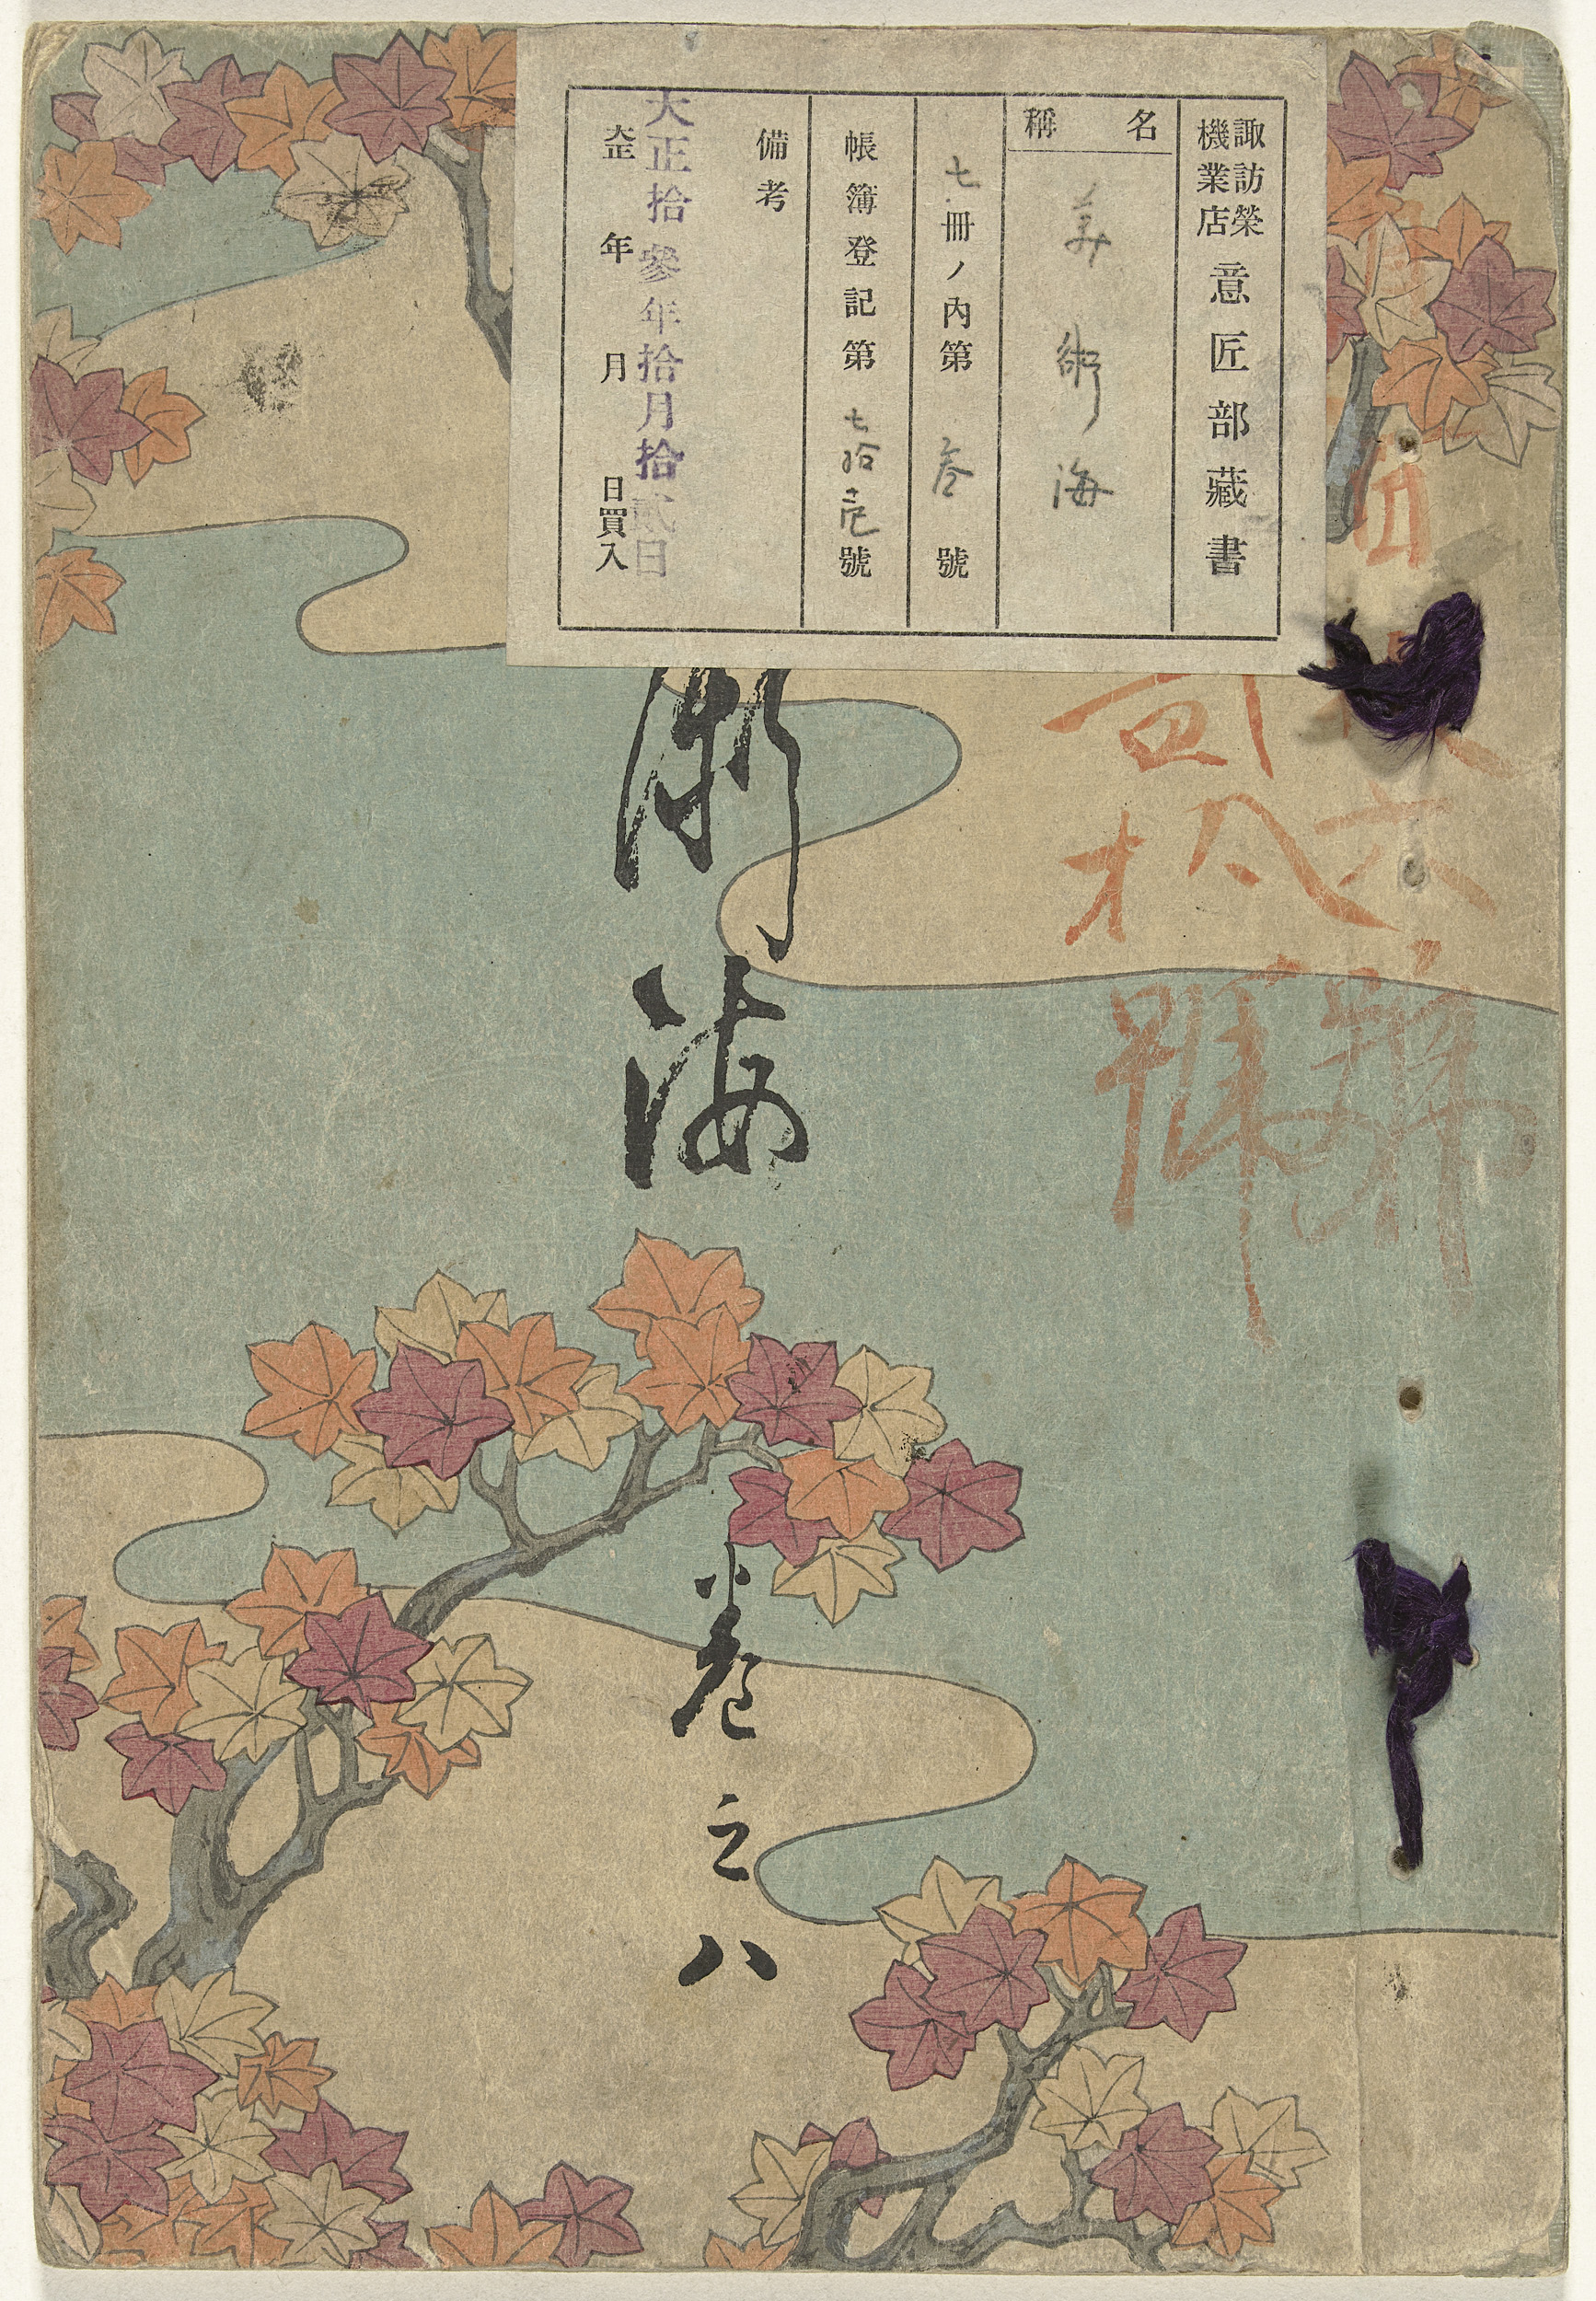 諏訪榮
機業店
意匠部藏書
名稱
美術海
七冊ノ內第參號
帳簿登記第七拾壱號
備考
大正拾參年拾月拾貳日
年月日買入
術海
卷之八
貳拾八號